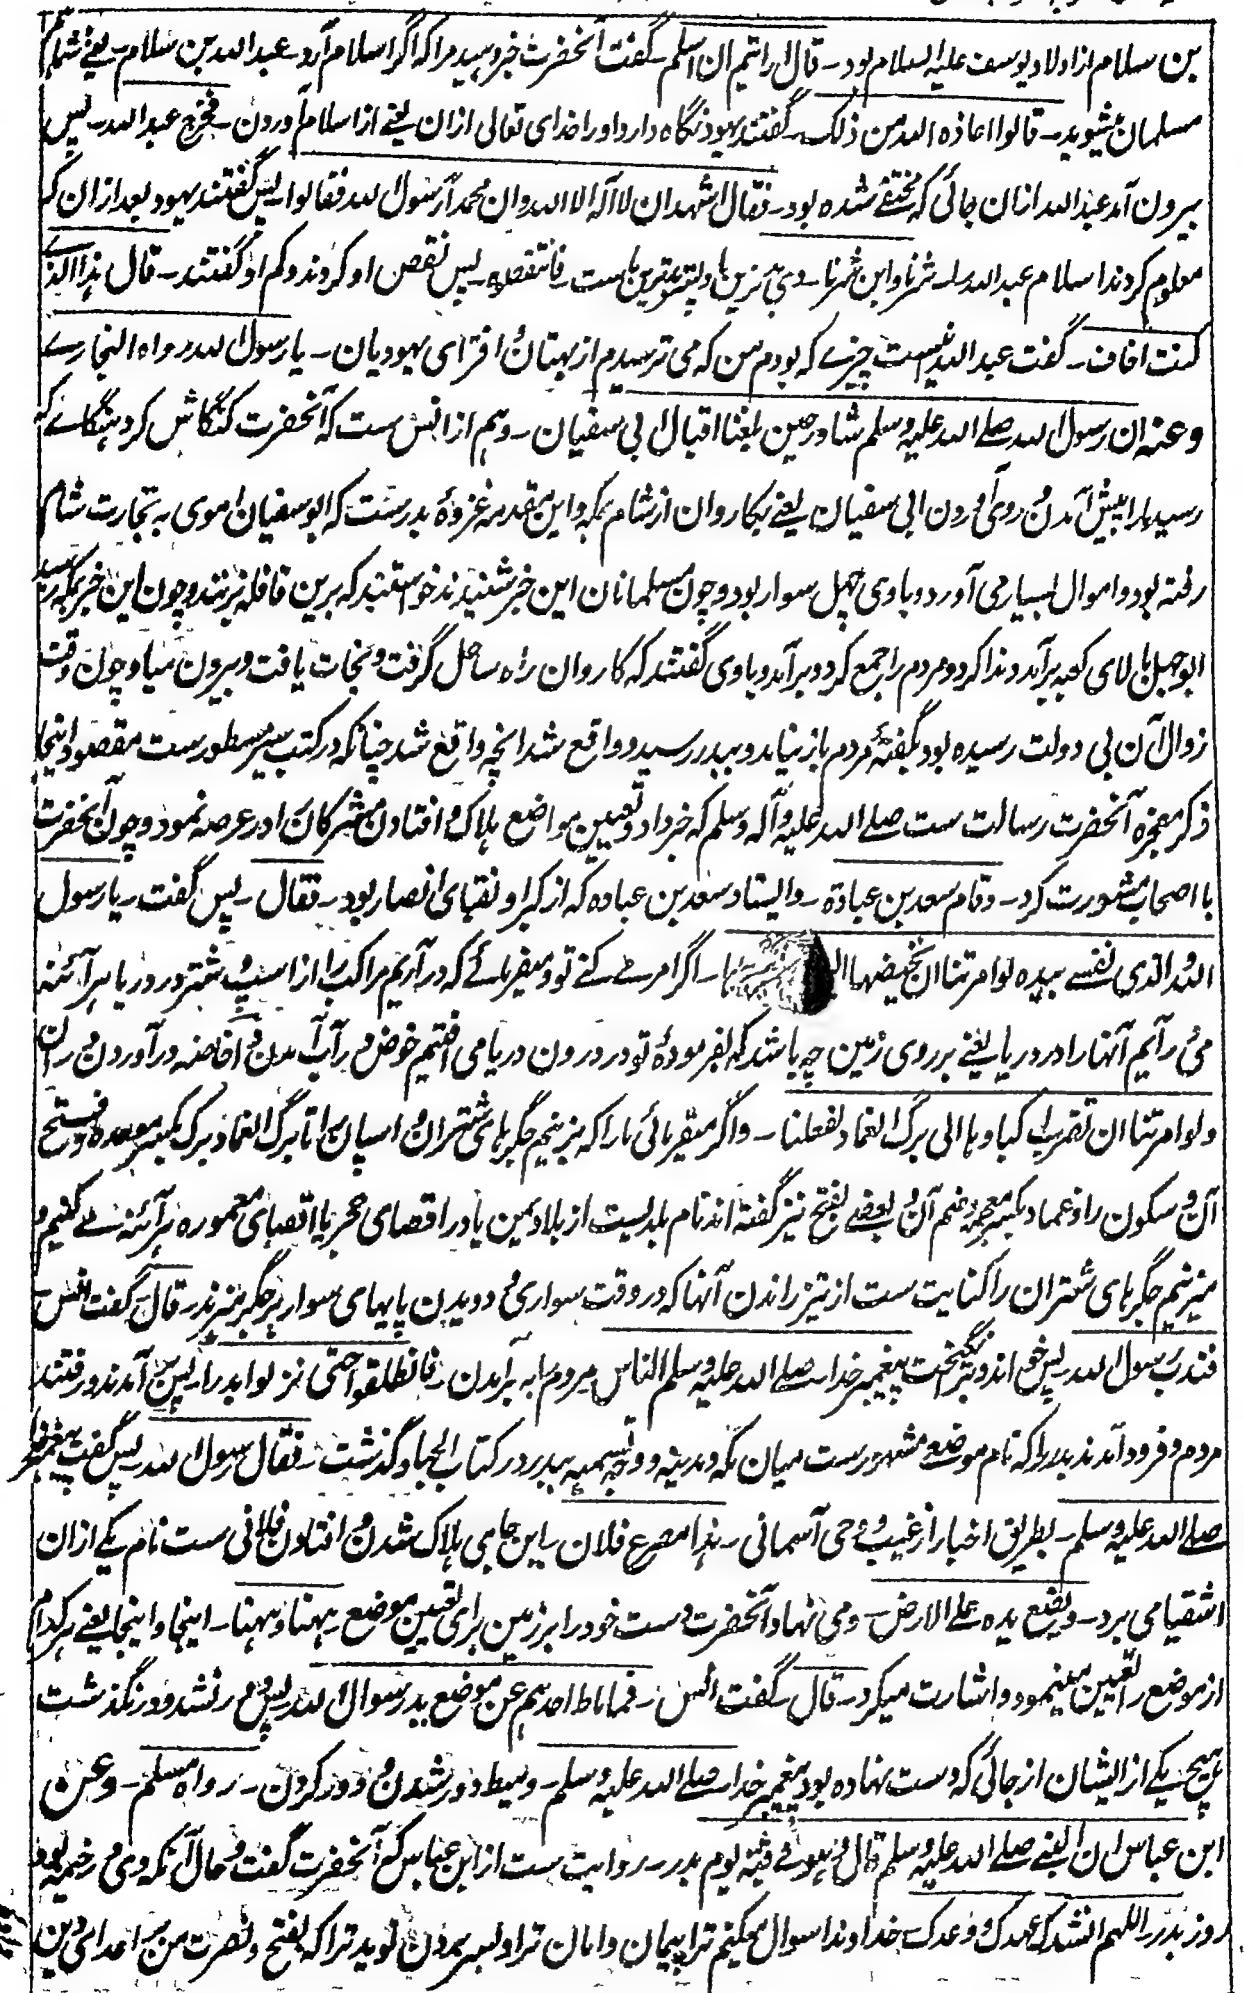 بن سلام از اولاد یوسف علیه السلام بود۔ قال ارایتم ان اسلم۔ گفت آنحضرت خبر دهید مرا که اگر اسلام آرد عبد الله بن سلام۔ یعنے شما هم
مسلمان میشوید۔ قالوا اعاذه الله من ذلک۔ گفتند یهود نگاه دارد او را خدای تعالی ازان یعنے از اسلام آوردن۔ فخرج عبد الله۔ پس
بیرون آمد عبد الله ازان جائی که مختفے شده بود۔ فقال اشهد ان لا اله الا الله وان محمدا رسول الله فقالوا۔ پس گفتند یهود بعد ازان که
معلوم کردند اسلام عبد الله را۔ شرنا وابن شرنا۔ وی بدترین ما و پسر بدترین ماست۔ فانتقصوه۔ پس نقص او کردند و کم او گفتند۔ قال هذا الذے
کنت اخاف۔ گفت عبد الله نیست چیزے که بودم من که می ترسیدم از بهتان و افترای یهودیان۔ یا رسول الله رواه البخارے
وعنه ان رسول الله صلے الله علیه وسلم شاور حین بلغنا اقبال ابی سفیان۔ وهم از انس ست که آنحضرت کنگاش کرد هنگامے که
رسید ما را پیش آمدن و روی آوردن ابی سفیان یعنے بکاروان از شام بمکه و این مقدمه غزوهٔ بدرست که ابو سفیان اموی به تجارت شام
رفته بود و اموال بسیار می آورد و با وی چهل سوار بود و چون مسلمانان این خبر شنیدند خواستند که برین قافله بزنند و چون این خبر بمکه رسید
ابو جهل بالای کعبه برآمد و ندا کرد و مردم را جمع کرد و برآمد و با وی گفتند که کاروان راه ساحل گرفت و نجات یافت و بیرون میا و چون وقت
زوال آن بی دولت رسیده بود بگفتهٔ مردم باز نیامد و ببدر رسید و واقع شد انچه واقع شد چنانکه در کتب سیر مسطورست مقصود اینجا
ذکر معجزه آنحضرت رسالت ست صلے الله علیه وآله وسلم که خبر داد و تعیین مواضع هلاک و افتادن مشرکان را در عرصه نمود و چون آنحضرت
با اصحاب مشورت کرد۔ وقام سعد بن عبادة۔ و ایستاد سعد بن عباده که از کبرا و نقبای انصار بود۔ فقال۔ پس گفت۔ یا رسول
الله والذی نفسے بیده لو امرتنا ان نخیضها ۔ اگر امر مے کنے تو و میفرمائے که در آریم مراکب را از اسپ و شتر در دریا هر آئنه
می در آیم آنها را در دریا یعنے بر روی زمین چه باشد که بفرمودهٔ تو در درون دریا می افتیم خوض در آب آمدن و افاضه در آوردن در ان
ولو امرتنا ان نضرب اکبادها الی برک الغماد لفعلنا۔ و اگر میفرمائی ما را که بزنیم جگرهای شتران و اسپان را تا برک الغماد برک بکسر موحده و فتح
آن و سکون را و غماد بکسر معجمه و ضم آن و بعضے بفتح نیز گفته اند نام بلدیست از بلاد یمن یا در اقصای هجر یا اقصای معموره هر آئنه مے کنیم و
میزنیم جگرهای شتران را کنایت ست از تیز راندن آنها که در وقت سواری و دویدن پایهای سوار بر جگر میزند۔ قال۔ گفت انس۔
فندب رسول الله۔ پس خواند و برانگیخت پیغمبر خدا۔ صلے الله علیه وسلم الناس مردم را به برآمدن۔ فانطلقوا حتی نزلوا بدرا۔ پس آمدند و رفتند
مردم و فرود آمدند بدر را که نام موضعے مشهورست میان مکه و مدینه و وجه تسمیه ببدر در کتاب الجهاد گذشت۔ فقال رسول الله۔ پس گفت پیغمبر خدا
صلے الله علیه وسلم۔ بطریق اخبار از غیب و وحی آسمانی۔ هذا مصرع فلان۔ این جای هلاک شدن و افتادن فلانی ست نام یکے ازان
اشقیا می برد۔ ویضع یده علے الارض۔ و می نهاد آنحضرت دست خود را بر زمین برای تعیین موضع۔ ههنا و ههنا۔ اینجا و اینجا یعنے هر کدام
از موضع را تعیین مینمود و اشارت میکرد۔ قال۔ گفت انس۔ فما ماط احدهم عن موضع ید رسول الله۔ پس دور نشد و درنگذشت
هیچ یکے از ایشان از جائی که دست نهاده بود پیغمبر خدا۔ صلے الله علیه وسلم۔ و میط دور شدن و دور کردن۔ رواه مسلم۔ وعن
ابن عباس ان النبے صلے الله علیه وسلم قال و هو فے قبة یوم بدر۔ روایت ست از ابن عباس که آنحضرت گفت و حال آنکه وی در خیمه بود
روز بدر۔ اللهم انشدک عهدک و وعدک۔ خداوندا سوال میکنم ترا پیمان و امان ترا و بسر بردن نوید ترا که بفتح و نصرت من بر اعدای دین